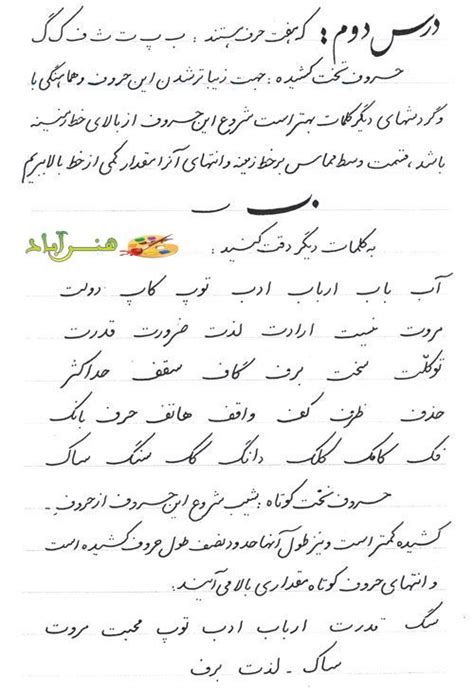 درس دوم: که هفت حرف هستند : ب پ ت ث ف ک گ
حروف تخت کشیده : جهت زیباتر شدن این حروف و هماهنگی با
و گردشهای دیگر کلمات بهتر است شروع این حروف از بالای خط زمینه
باشد، قسمت وسط مماس بر خط زمینه و انتهای آنرا مقدار کمی از خط بالا ببریم
ب
به کلمات دیگر دقت کنید :
هنر آباد
آب باب ارباب ادب توپ کاپ دولت
مروت نیست ارادت لذت ضرورت قدرت
توکلت سخت برف گاف سقف حداکثر
حذف ظرف کف واقف هاتف حرف بانک
فک کامک کلک دانگ گگ سنگ ساک
حروف تخت کوتاه : شیب شروع این حروف از حروف ـ
کشیده کمتر است و نیز طول آنها حدود نصف طول حروف کشیده است
و انتهای حروف کوتاه مقداری بالا می آئیند:
سگ قدرت ارباب ادب توپ محبت مروت
ساک ـ لذت برف